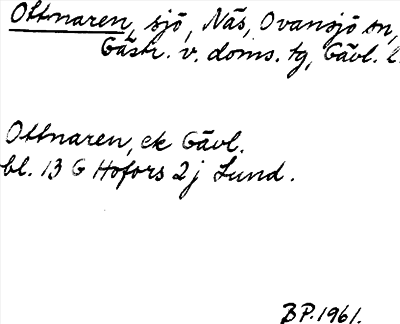 Ottnaren, sjö, Näs, Ovansjö sn,
Gästr. v. doms. tg, Gävl. l.
Ottnaren, ek Gävl.
bl. 13 G Hofors 2 j Lund.
BP. 1961.